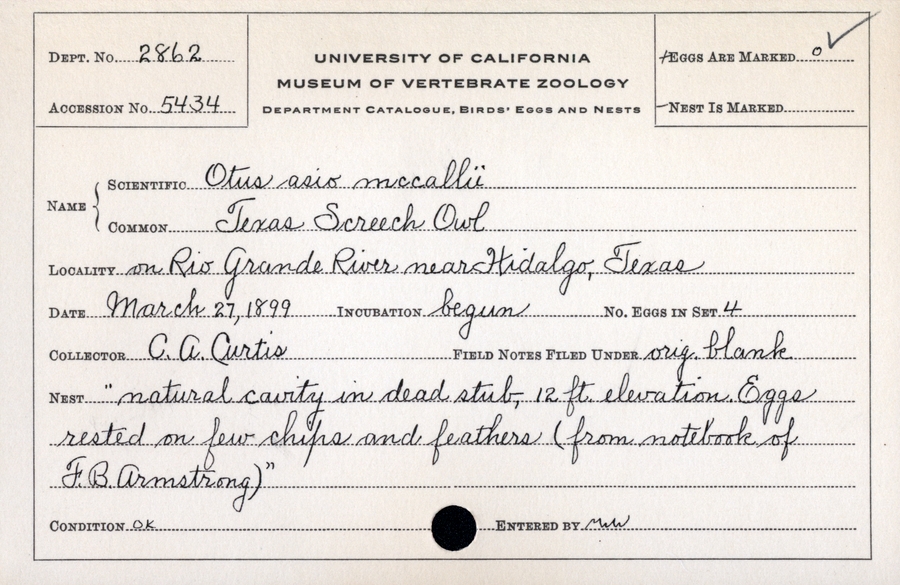 Dept. No. 2862
Accession No. 5434
UNIVERSITY OF CALIFORNIA
MUSEUM OF VERTEBRATE ZOOLOGY
Department Catalogue, Birds' Eggs and Nests
Eggs Are Marked o
Nest Is Marked
Name
Scientific Otus asio mccallii
Common Texas Screech Owl
Locality on Rio Grande River near Hidalgo, Texas
Date March 27, 1899 Incubation begun No. Eggs in Set 4
Collector C. A. Curtis Field Notes Filed Under orig. blank
Nest "natural cavity in dead stub, 12 ft. elevation. Eggs
rested on few chips and feathers (from notebook of
F. B. Armstrong)"
Condition OK Entered by